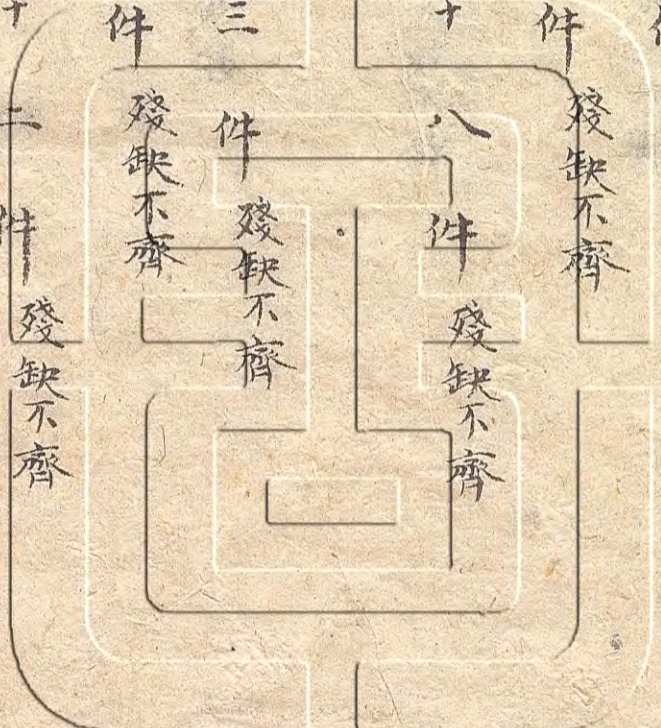 件殘缺不齊
十八件殘缺不齊
三件殘缺不齊
件殘缺不齊
十二件殘缺不齊